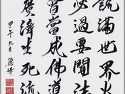 設滿世界火
必過要聞法
會當成佛道
廣濟生死流
甲午九月